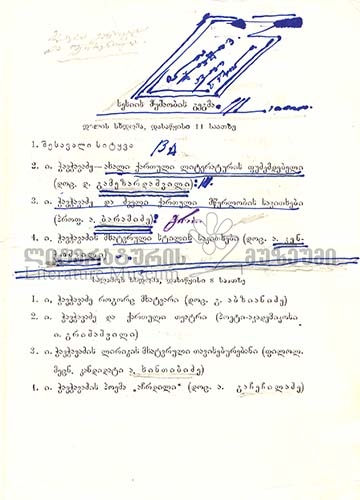 სესიის მუშაობის გეგმა
დილის სხდომა, დასაწყისი 11 საათზე
1. შესავალი სიტყვა
2. ი. ჭავჭავაძე—ახალი ქართული ლიტერატურის ფუძემდებელი
(დოც. დ. გამეზარდაშვილი)
3. ი. ჭავჭავაძე და ძველი ქართული მწერლობის საკითხები
(პროფ. ა. ბარამიძე)
4. ი. ჭავჭავაძის მხატვრული სტილის საკითხები (დოც. ა. კენ.
ლიტერატურის მუზეუმი
Literature Museum
საღამოს სხდომა, დასაწყისი 8 საათზე
1. ი. ჭავჭავაძე როგორც მხატვარი (დოც. გ. აბზიანიძე)
2. ი. ჭავჭავაძე და ქართული თეატრი (პოეტი-აკადემიკოსი
ი. გრიშაშვილი)
3. ი. ჭავჭავაძის ლირიკის მხატვრული თავისებურებანი (ფილოლ.
მეცნ. კანდიდატი ა. ხინთიბიძე)
4. ი. ჭავჭავაძის პოემა „აჩრდილი" (დოც. ა. გაჩეჩილაძე)